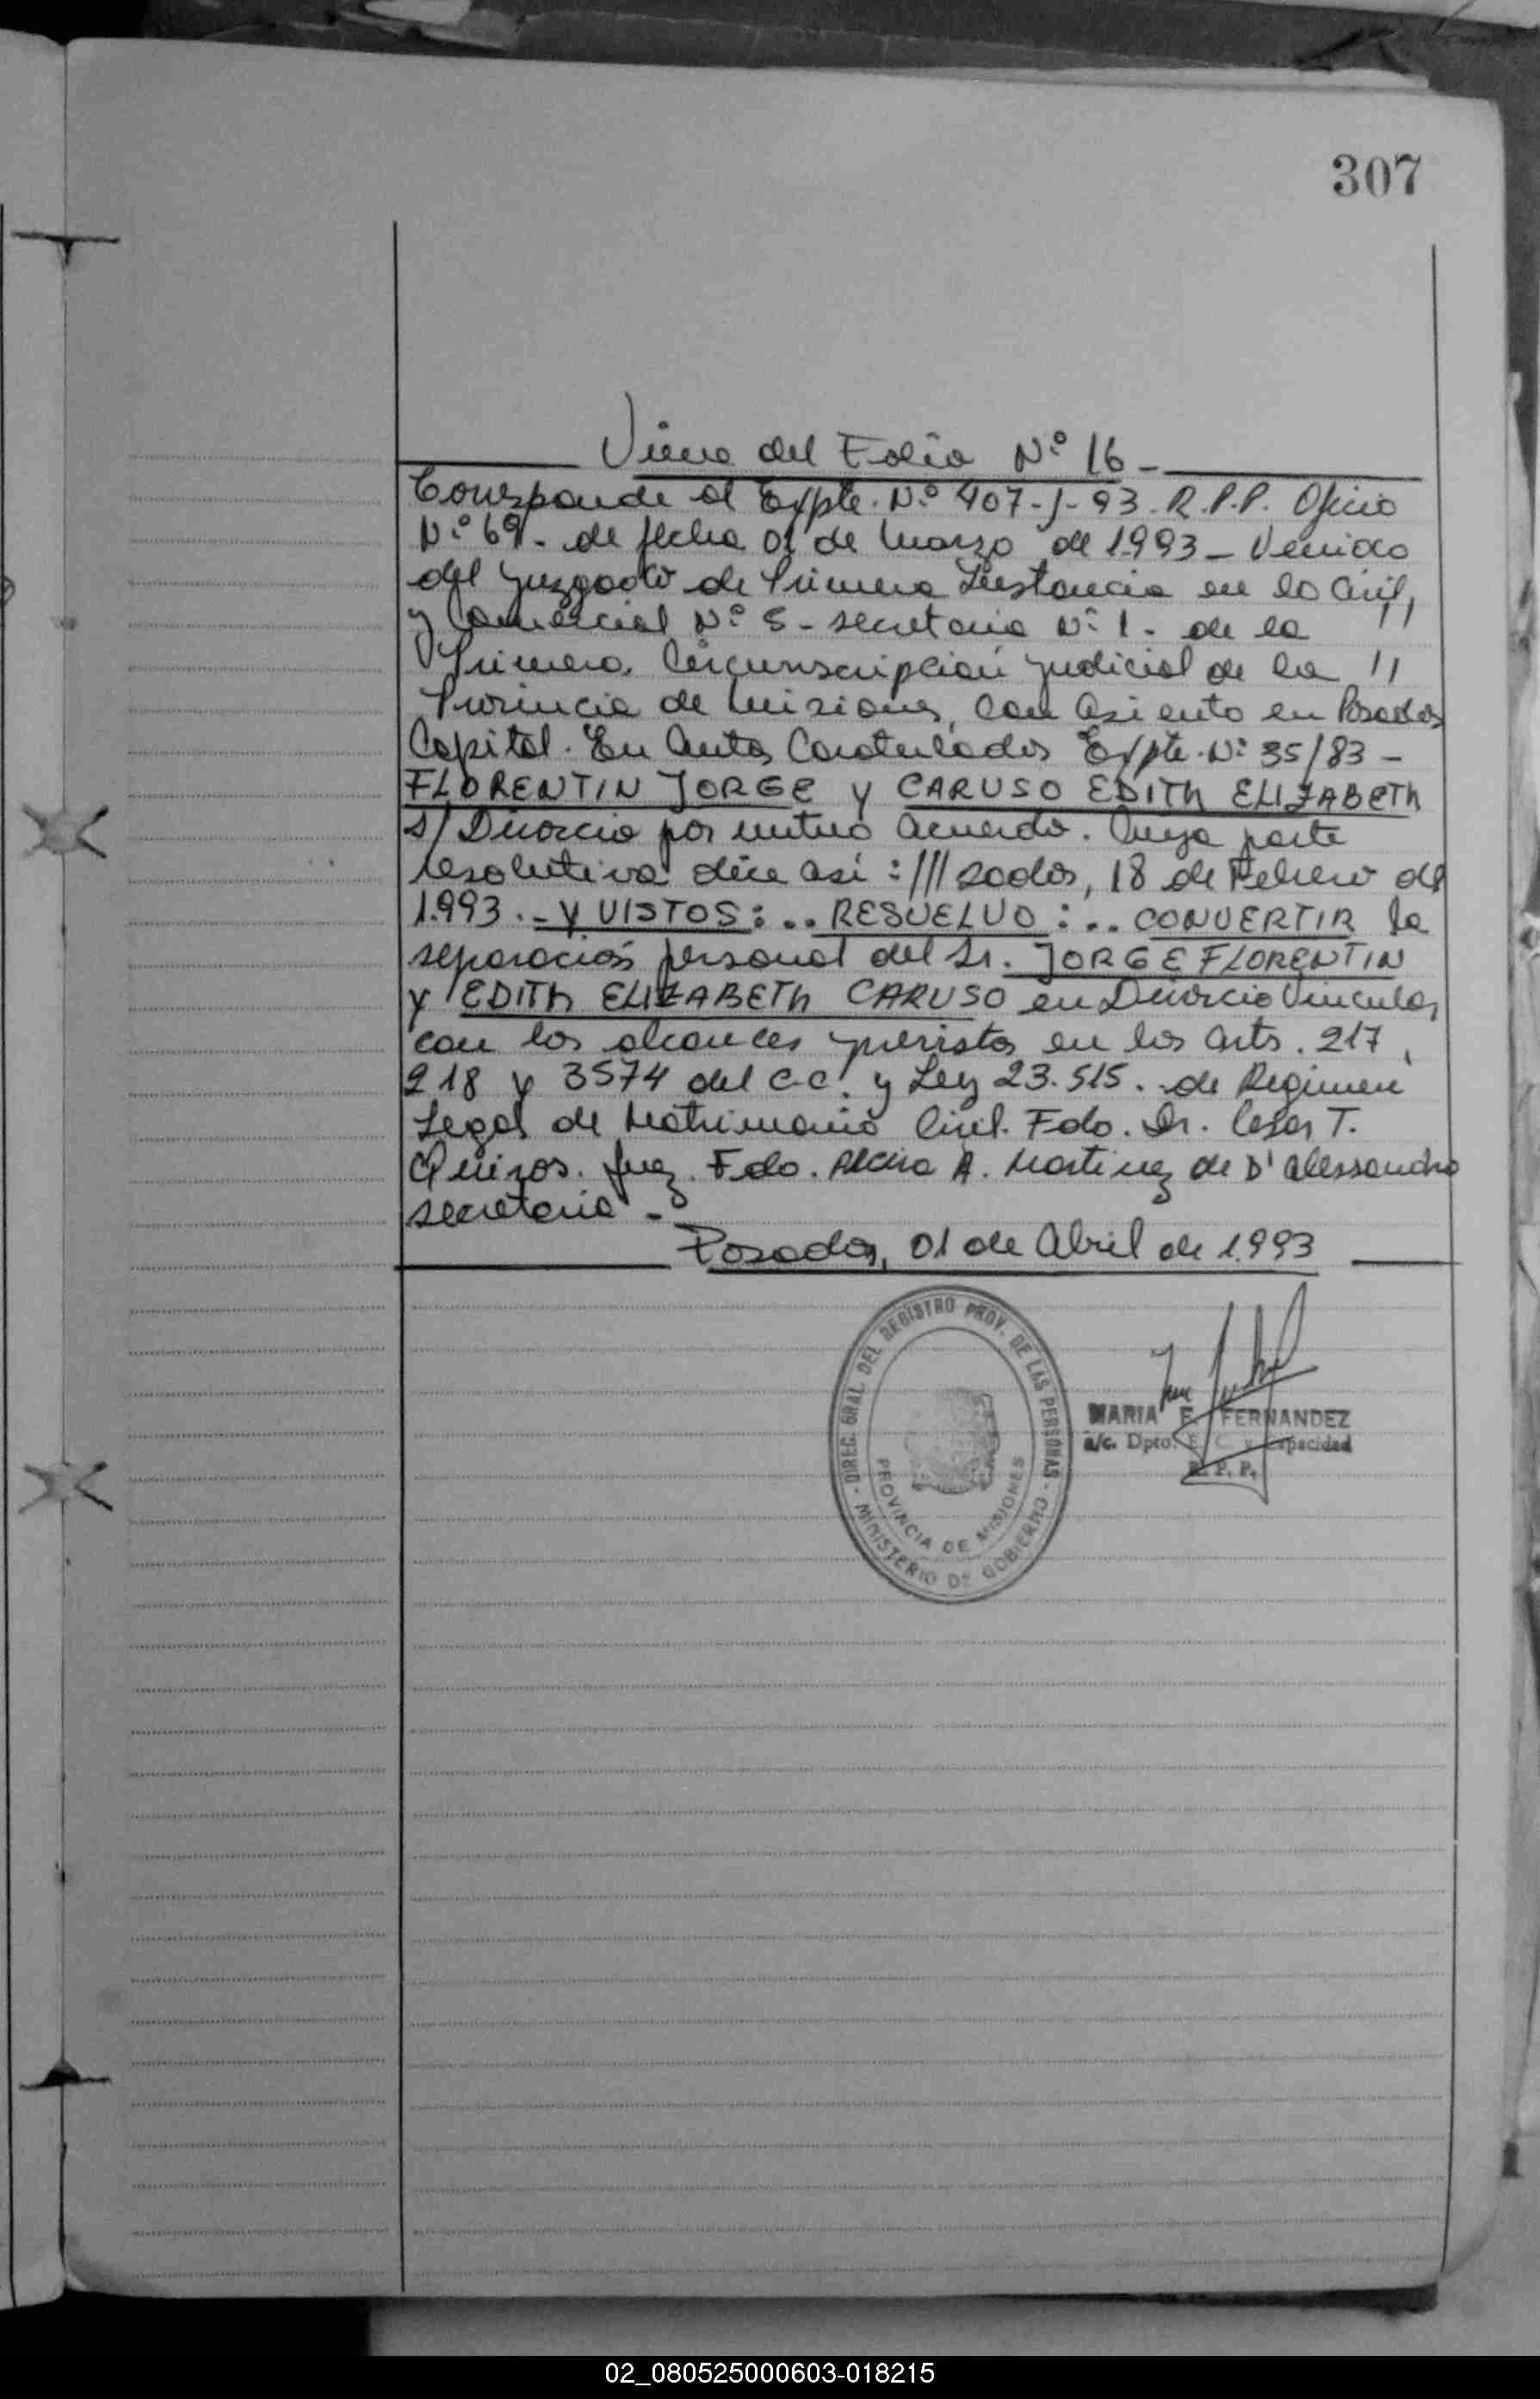 307
Viene del Folio N° 16 -
Corresponde al Expte. N° 407-J-93. R.P.P. Oficio
N° 69 - de fecha 01 de Marzo de 1.993 - Venido
del Juzgado de Primera Instancia en lo Civil,
y Comercial N° 5 - secretaria N° 1. de la //
Primera Circunscripcion judicial de la //
Provincia de Misiones, con Asiento en Posadas
Capital. En Autos Caratulados Expte. N° 35/83 -
FLORENTIN JORGE y CARUSO EDITH ELIZABETH
s/ Divorcio por mutuo Acuerdo. Cuya parte
resolutiva dice asi: /// sadas, 18 de Febrero de
1.993. - Y VISTOS: .. RESUELVO: .. CONVERTIR la
separación personal del Sr. JORGE FLORENTIN
y EDITH ELIZABETH CARUSO en Divorcio Vincular,
con los alcances previstos en los arts. 217,
218 y 3574 del C.C. y Ley 23.515. de Regimen
Legal de Matrimonio Civil. Fdo. Dr. Cesar T.
Quiros. Juez. Fdo. A. Martinez de D'Alessandro
secretaria -
Posadas, 01 de Abril de 1.993
DIREC. GRAL. DEL REGISTRO PROV. DE LAS PERSONAS
MINISTERIO DE GOBIERNO
PROVINCIA DE MISIONES
MARIA E. FERNANDEZ
a/c. Dpto. E. C. y Capacidad
R. P. P.
02_080525000603-018215